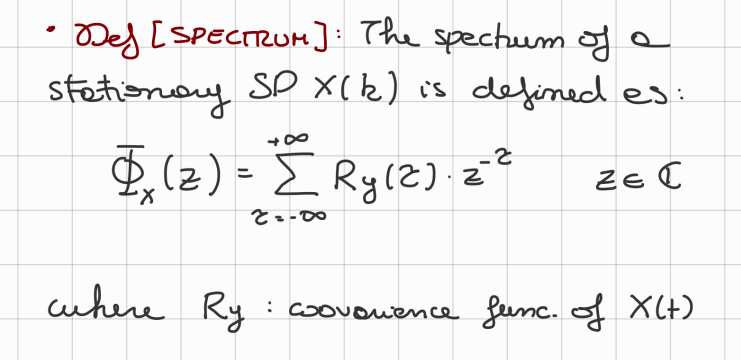 • Def [SPECTRUM]: The spectrum of a
stationary SP X(k) is defined as:
Φ_x(z) = Σ_{τ=-∞}^{+∞} Ry(τ) · z^{-τ}    z ∈ ℂ
where Ry : covariance func. of X(t)